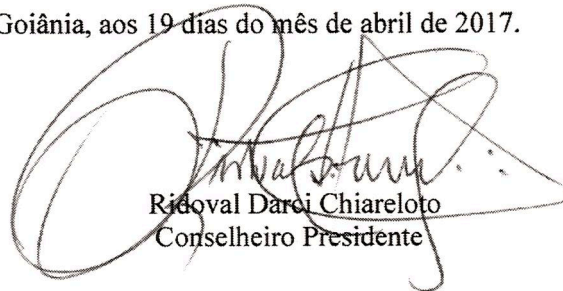 Goiânia, aos 19 dias do mês de abril de 2017.
Ridoval Darci Chiareloto
Conselheiro Presidente